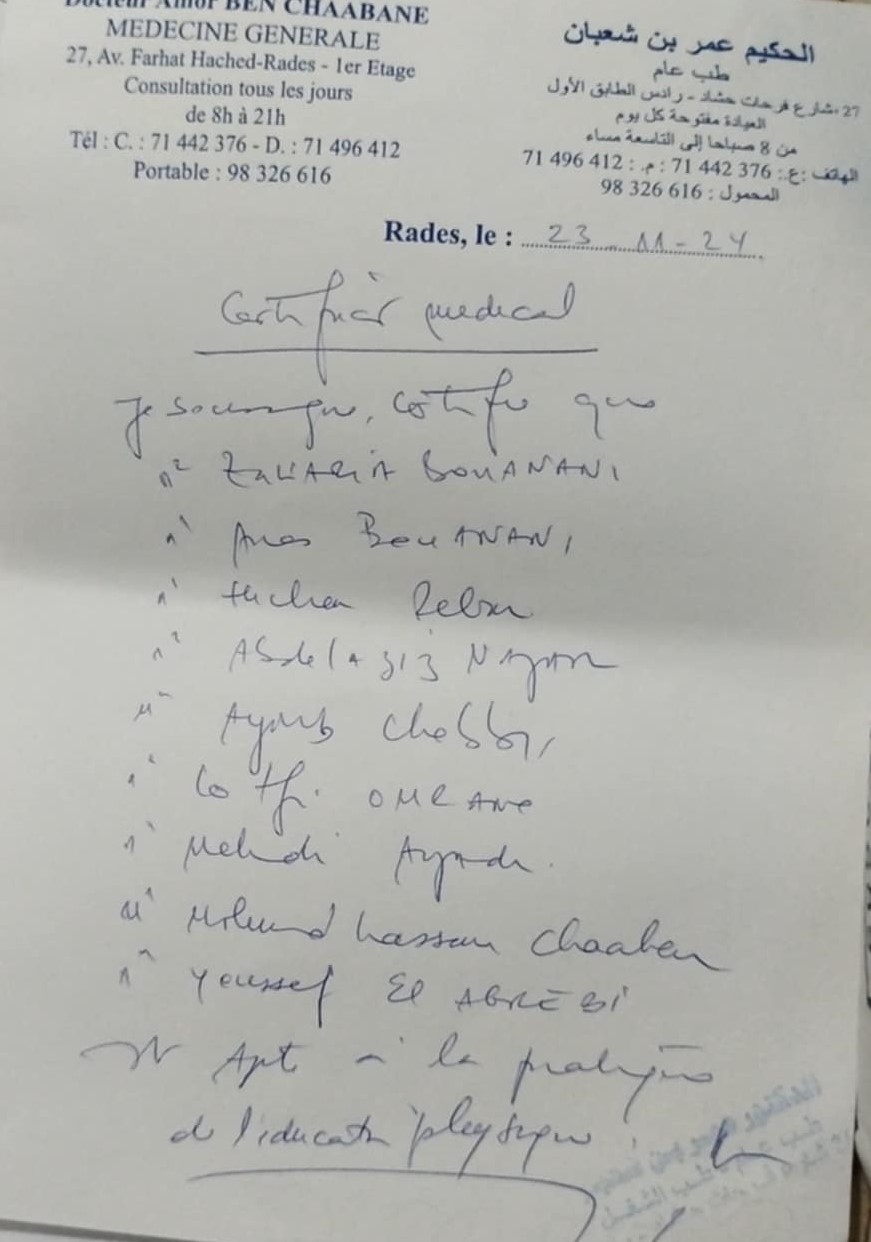 Docteur Amor BEN CHAABANE
MEDECINE GENERALE
27, Av. Farhat Hached-Rades - 1er Etage
Consultation tous les jours
de 8h à 21h
Tél : C. : 71 442 376 - D. : 71 496 412
Portable : 98 326 616
الحكيم عمر بن شعبان
طب عام
27 ،شارع فرحات حشاد - رادس الطابق الأول
العيادة مفتوحة كل يوم
من 8 صباحا إلى التاسعة مساء
الهاتف :ع.: 376 442 71 م. : 412 496 71
المحمول : 616 326 98
Rades, le : 23 11-24
Certificat medical
Je soussigne, certifie que
ZAKARIA BOUANANI
Anas BouANANI
Hichem
Abdelaziz
Ayoub Chebbi
Lotfi OMRANE
Mehdi Ayadi
Mohamed hassan Chaaben
Youssef El AGREBI
Apte à la pratique
de l'education physique